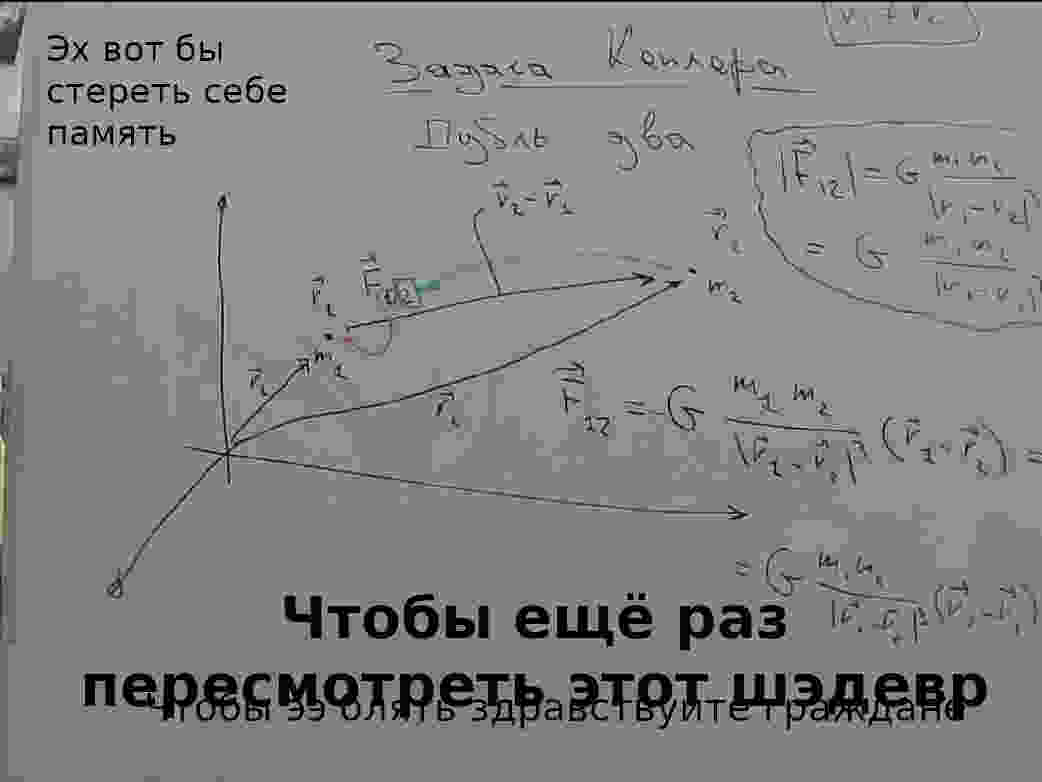 Эх вот бы
стереть себе
память
Задача Кеплера
Дубль два
r⃗₂-r⃗₁
|F⃗₁₂| = G m₁m₂
= G m₁m₂
r⃗₂
m₂
F⃗₁₂
r⃗₁
m₁
r⃗₁
r⃗₂
F⃗₁₂ = -G m₁ m₂ / |r⃗₁-r⃗₂|³ (r⃗₁-r⃗₂) =
= G m₁m₂
Чтобы ещё раз
пересмотреть этот шэдевр
Чтобы ээ блять здравствуйте граждане